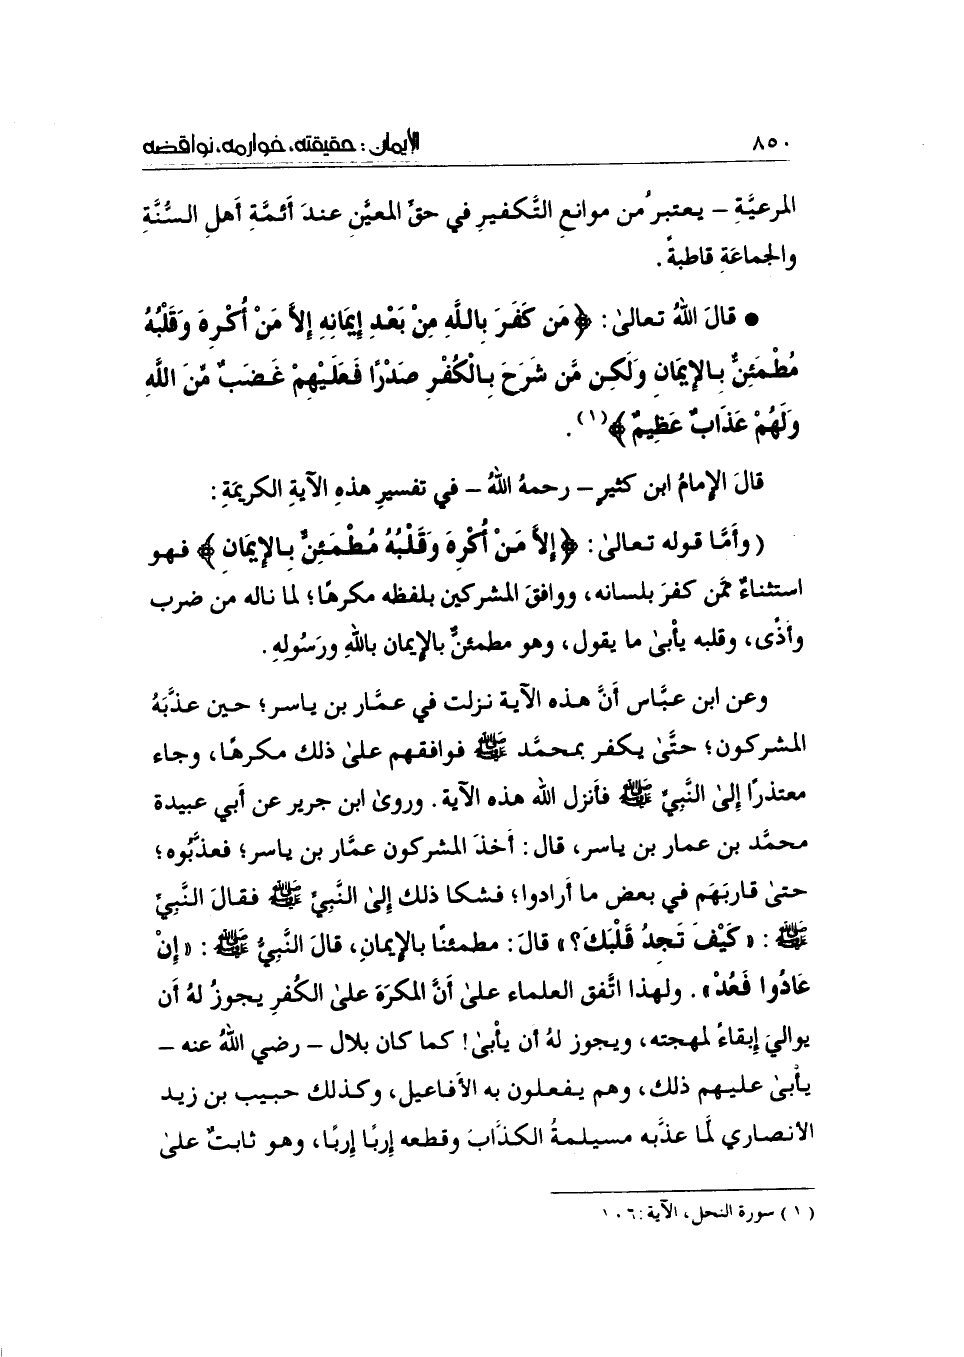 ٨٥٠
الإيمان: حقيقته، خوارمه، نواقضه
المرعيَّةِ – يعتبرُ من موانعِ التَّكفيرِ في حقِّ المعيَّنِ عندَ أئمَّةِ أهلِ السُّنَّةِ
والجماعَةِ قاطبةً.
● قالَ اللهُ تعالىٰ: ﴿مَن كَفَرَ بِاللَّهِ مِنْ بَعْدِ إِيمَانِهِ إِلاَّ مَنْ أُكْرِهَ وَقَلْبُهُ
مُطْمَئِنٌّ بِالإِيمَانِ وَلَكِن مَّن شَرَحَ بِالْكُفْرِ صَدْرًا فَعَلَيْهِمْ غَضَبٌ مِّنَ اللَّهِ
وَلَهُمْ عَذَابٌ عَظِيمٌ﴾(١).
قالَ الإمامُ ابن كثيرٍ – رحمهُ اللهُ – في تفسيرِ هذهِ الآيةِ الكريمَةِ:
(وأمَّا قوله تعالىٰ: ﴿إِلاَّ مَنْ أُكْرِهَ وَقَلْبُهُ مُطْمَئِنٌّ بِالإِيمَانِ﴾ فهو
استثناءٌ ممَّن كفرَ بلسانه، ووافقَ المشركين بلفظه مكرهًا؛ لما ناله من ضرب
وأذًى، وقلبه يأبىٰ ما يقول، وهو مطمئنٌّ بالإيمان باللهِ ورَسُولِهِ.
وعن ابن عبَّاس أنَّ هذه الآية نزلت في عمَّار بن ياسر؛ حين عذَّبَهُ
المشركون؛ حتَّىٰ يكفر بمحمَّد ﷺ فوافقهم علىٰ ذلك مكرهًا، وجاء
معتذرًا إلىٰ النَّبِيِّ ﷺ فأنزل الله هذه الآية. وروىٰ ابن جرير عن أبي عبيدة
محمَّد بن عمار بن ياسر، قال: أخذَ المشركون عمَّار بن ياسر؛ فعذَّبُوه؛
حتىٰ قاربَهَم في بعض ما أرادوا؛ فشكا ذلك إلىٰ النَّبيِّ ﷺ فقالَ النَّبيِّ
ﷺ: «كَيْفَ تَجِدُ قَلْبَكَ؟» قالَ: مطمئنًا بالإيمانِ، قالَ النَّبِيُّ ﷺ: «إِنْ
عَادُوا فَعُدْ». ولهذا اتَّفق العلماء علىٰ أنَّ المكرَهَ علىٰ الكُفرِ يجوزُ لهُ أن
يواليَ إبقاءً لمهجته، ويجوز لهُ أن يأبىٰ! كما كان بلال – رضي اللهُ عنه –
يأبىٰ عليهم ذلك، وهم يفعلون به الأفاعيل، وكذلك حبيب بن زيد
الأنصاري لمَّا عذَّبه مسيلمةُ الكذَّابَ وقطعه إربًا إربًا، وهو ثابتٌ علىٰ
(١) سورة النحل، الآية: ١٠٦